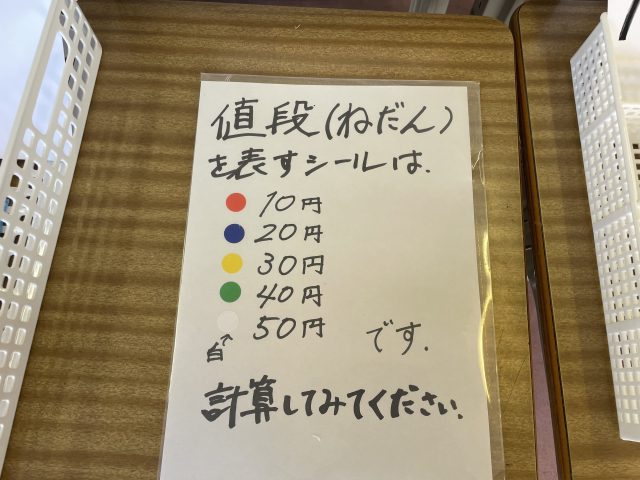 値段(ねだん)
を表すシールは.
10円
20円
30円
40円
50円
白
です.
計算してみてください.